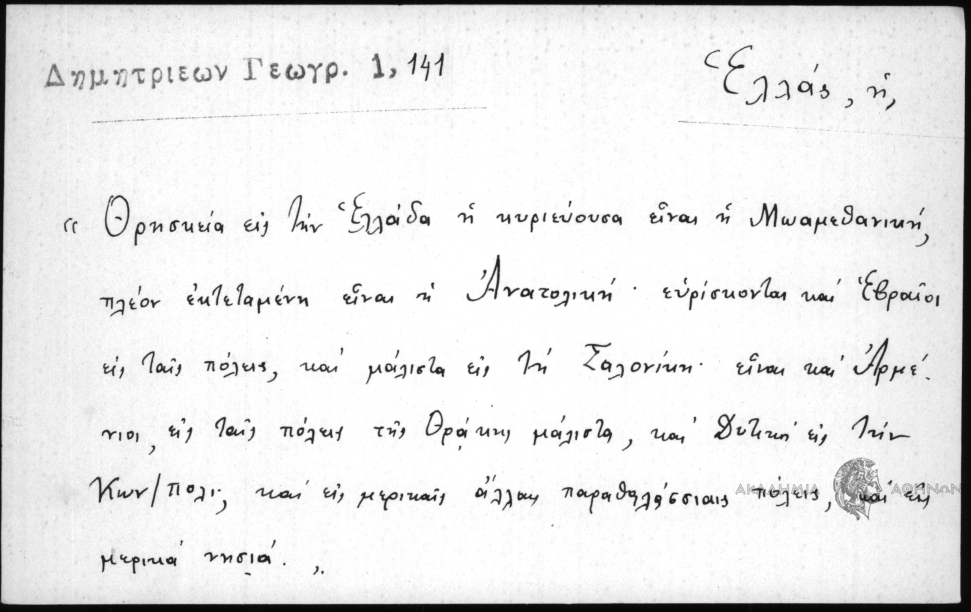 Δημητριεων Γεωγρ. 1, 141
Ἑλλάς, ἡ,
« Θρησκεία εἰς τὴν Ἑλλάδα ἡ κυριεύουσα εἶναι ἡ Μωαμεθανική,
πλέον ἐκτεταμένη εἶναι ἡ Ἀνατολική · εὑρίσκονται καὶ Ἑβραῖοι
εἰς ταῖς πόλεις, καὶ μάλιστα εἰς τὴ Σαλονίκη · εἶναι καὶ Ἀρμέ-
νιοι, εἰς ταῖς πόλεις τῆς Θράκης μάλιστα, καὶ Δυτικοὶ εἰς τὴν
Κων/πολι, καὶ εἰς μερικαῖς ἄλλαις παραθαλάσσιαις πόλεις, καὶ εἰς
μερικὰ νησιά. »
ΑΚΑΔΗΜΙΑ ΑΘΗΝΩΝ